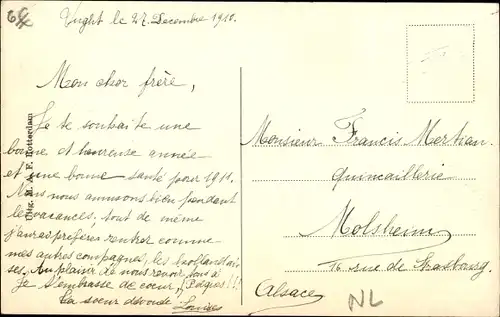 Vught le 27. Decembre 1910.
Mon cher frère,
Je te souhaite une
bonne et heureuse année
et une bonne santé pour 1911.
Nous nous amusons bien pendant
les vacances, tout de même
j'aurais préféré rentrer comme
mes autres compagnes, les hollandai
ses. Au plaisir de nous revoir tous à
Je t'embrasse de coeur,
ta soeur dévouée Louise
Uitg. M. A. F. Rotterdam
Monsieur Francis Mertian
Quincaillerie
Molsheim
16 rue de Strasbourg.
Alsace
NL